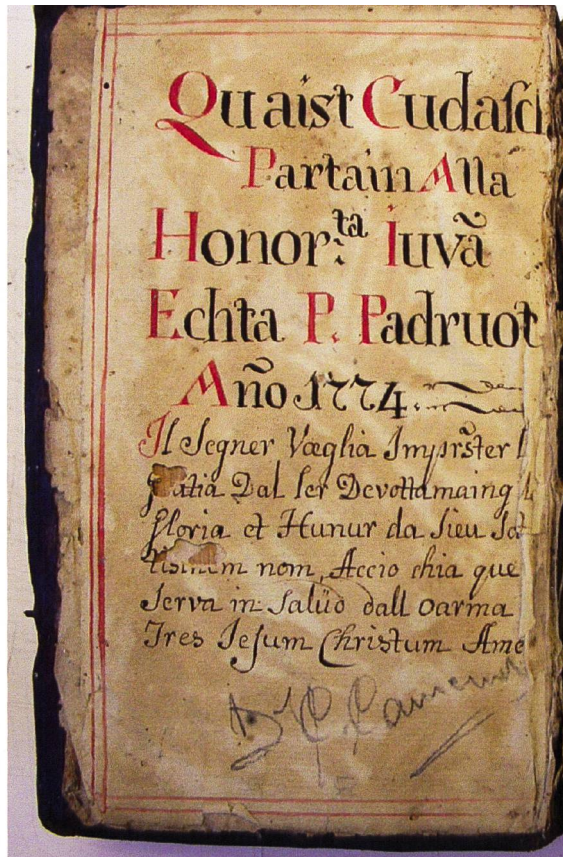 Quaist Cudaſch
Partain Alla
Honor:ta Iuvã
Echta P. Padruot
Año 1774
Il Segner Væglia Imprs̃ter
gratia Dal ler Devottamaing
gloria et Hunur da ſieu
nom, Accio chia que
Serva in Salüd dall oarma
Tres Ieſum Chriſtum Ame